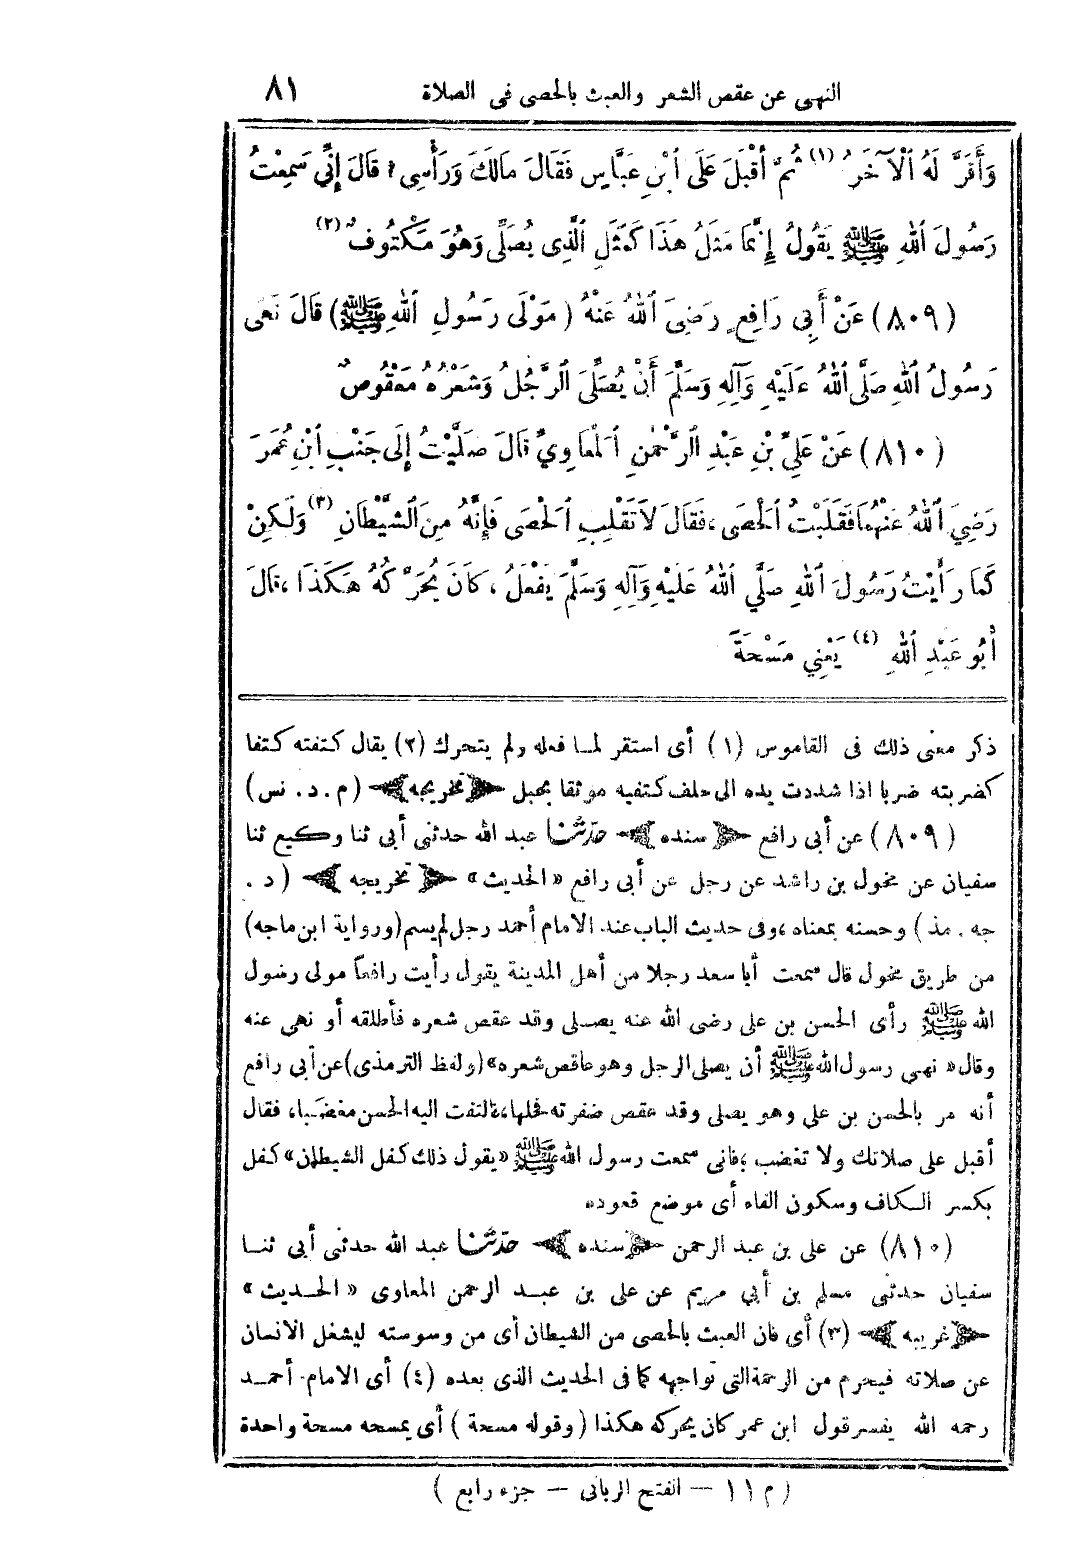 النهى عن عقص الشعر والعبث بالحصى فى الصلاة ٨١
وَأَقَرَّ لَهُ ٱلْآخَرُ (١) ثُمَّ أَقْبَلَ عَلَى ٱبْنِ عَبَّاسٍ فَقَالَ مَالَكَ وَرَأْسِي؟ قَالَ إِنِّي سَمِعْتُ
رَسُولَ ٱللهِ ﷺ يَقُولُ إِنَّمَا مَثَلُ هَذَا كَمَثَلِ ٱلَّذِى يُصَلِّى وَهُوَ مَكْتُوفٌ (٢)
(٨٠٩) عَنْ أَبِي رَافِعٍ رَضِيَ ٱللهُ عَنْهُ (مَوْلَى رَسُولِ ٱللهِ ﷺ) قَالَ نَهَى
رَسُولُ ٱللهِ صَلَّى ٱللهُ عَلَيْهِ وَآلِهِ وَسَلَّمَ أَنْ يُصَلِّيَ ٱلرَّجُلُ وَشَعْرُهُ مَعْقُوصٌ
(٨١٠) عَنْ عَلِيِّ بْنِ عَبْدِ ٱلرَّحْمٰنِ ٱلْمُعَاوِيِّ قَالَ صَلَّيْتُ إِلَى جَنْبِ ٱبْنِ عُمَرَ
رَضِيَ ٱللهُ عَنْهُمَا فَقَلَبْتُ ٱلْحَصَى، فَقَالَ لَا تَقْلِبِ ٱلْحَصَى فَإِنَّهُ مِنَ ٱلشَّيْطَانِ (٣) وَلَكِنْ
كَمَا رَأَيْتُ رَسُولَ ٱللهِ صَلَّي ٱللهُ عَلَيْهِ وَآلِهِ وَسَلَّمَ يَفْعَلُ، كَانَ يُحَرِّكُهُ هَكَذَا، قَالَ
أَبُو عَبْدِ ٱللهِ (٤) يَعْنِي مَسْحَةً
ذكر معنى ذلك فى القاموس (١) أى استقر لما فعله ولم يتحرك (٢) يقال كتفته كتفا
كضربته ضربا اذا شددت يده الى خلف كتفيه موثقا بحبل ﴿تخريجه﴾ (م. د. نس)
(٨٠٩) عن أبى رافع ﴿سنده﴾ حدّثنا عبد الله حدثنى أبى ثنا وكيع ثنا
سفيان عن مخول بن راشد عن رجل عن أبى رافع «الحديث» ﴿تخريجه﴾ (د.
جه. مذ) وحسنه بمعناه، وفى حديث الباب عند الامام أحمد رجل لم يسم (ورواية ابن ماجه)
من طريق مخول قال سمعت أبا سعد رجلا من أهل المدينة يقول رأيت رافعاً مولى رسول
الله ﷺ رأى الحسن بن على رضى الله عنه يصلى وقد عقص شعره فأطلقه أو نهى عنه
وقال «نهى رسول الله ﷺ أن يصلى الرجل وهو عاقص شعره» (ولفظ الترمذى) عن أبى رافع
أنه مر بالحسن بن على وهو يصلى وقد عقص ضفرته فحلها، فالتفت اليه الحسن مغضبا، فقال
أقبل على صلاتك ولا تغضب، فانى سمعت رسول الله ﷺ «يقول ذلك كفل الشيطان» كفل
بكسر الكاف وسكون الفاء أى موضع قعوده
(٨١٠) عن على بن عبد الرحمن ﴿سنده﴾ حدّثنا عبد الله حدثنى أبى ثنا
سفيان حدثنى مسلم بن أبي مريم عن على بن عبد الرحمن المعاوى «الحديث»
﴿غريبه﴾ (٣) أى فان العبث بالحصى من الشيطان أى من وسوسته ليشغل الانسان
عن صلاته فيحرم من الرحمة التى تواجهه كما فى الحديث الذى بعده (٤) أى الامام أحمد
رحمه الله يفسر قول ابن عمر كان يحركه هكذا (وقوله مسحة) أى يمسحه مسحة واحدة
(م ١١ — الفتح الربانى — جزء رابع)